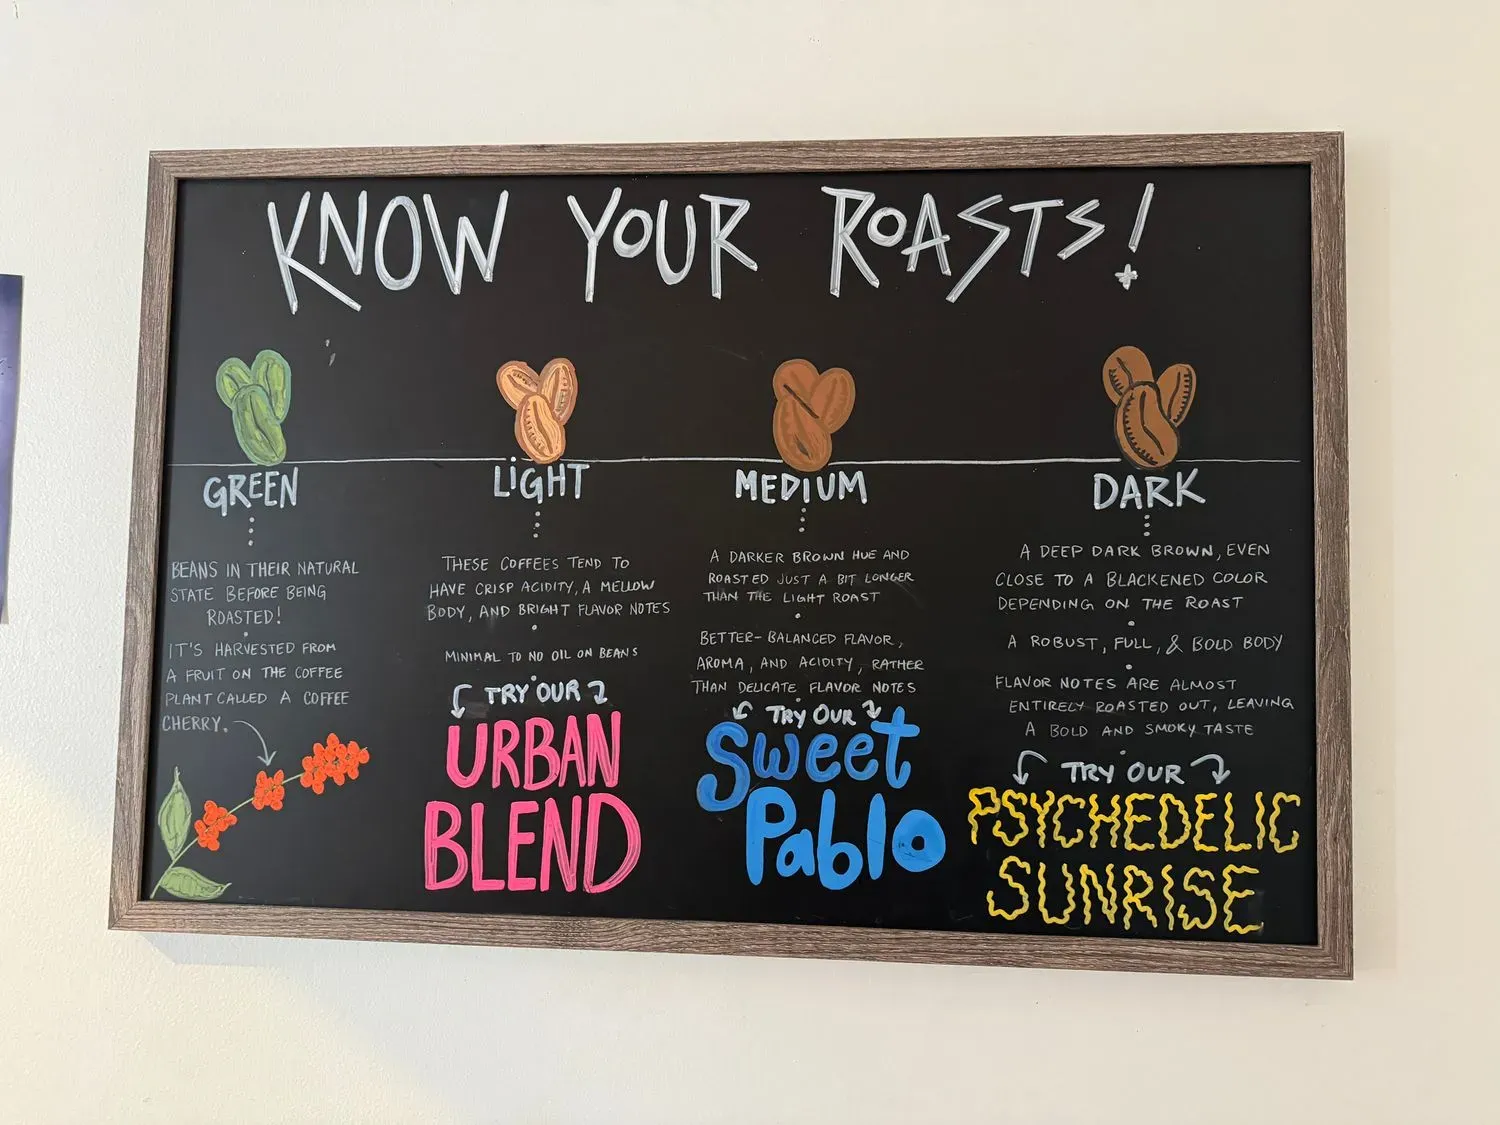 KNOW YOUR ROASTS!
GREEN
BEANS IN THEIR NATURAL
STATE BEFORE BEING
ROASTED!
IT'S HARVESTED FROM
A FRUIT ON THE COFFEE
PLANT CALLED A COFFEE
CHERRY.
LiGHT
THESE COFFEES TEND TO
HAVE CRISP ACIDITY, A MELLOW
BODY, AND BRIGHT FLAVOR NOTES
MINIMAL TO NO OIL ON BEANS
TRY OUR
URBAN
BLEND
MEDIUM
A DARKER BROWN HUE AND
ROASTED JUST A BIT LONGER
THAN THE LIGHT ROAST
BETTER-BALANCED FLAVOR,
AROMA, AND ACIDITY, RATHER
THAN DELICATE FLAVOR NOTES
TRY OUR
Sweet
Pablo
DARK
A DEEP DARK BROWN, EVEN
CLOSE TO A BLACKENED COLOR
DEPENDING ON THE ROAST
A ROBUST, FULL, & BOLD BODY
FLAVOR NOTES ARE ALMOST
ENTIRELY ROASTED OUT, LEAVING
A BOLD AND SMOKY TASTE
TRY OUR
PSYCHEDELIC
SUNRISE